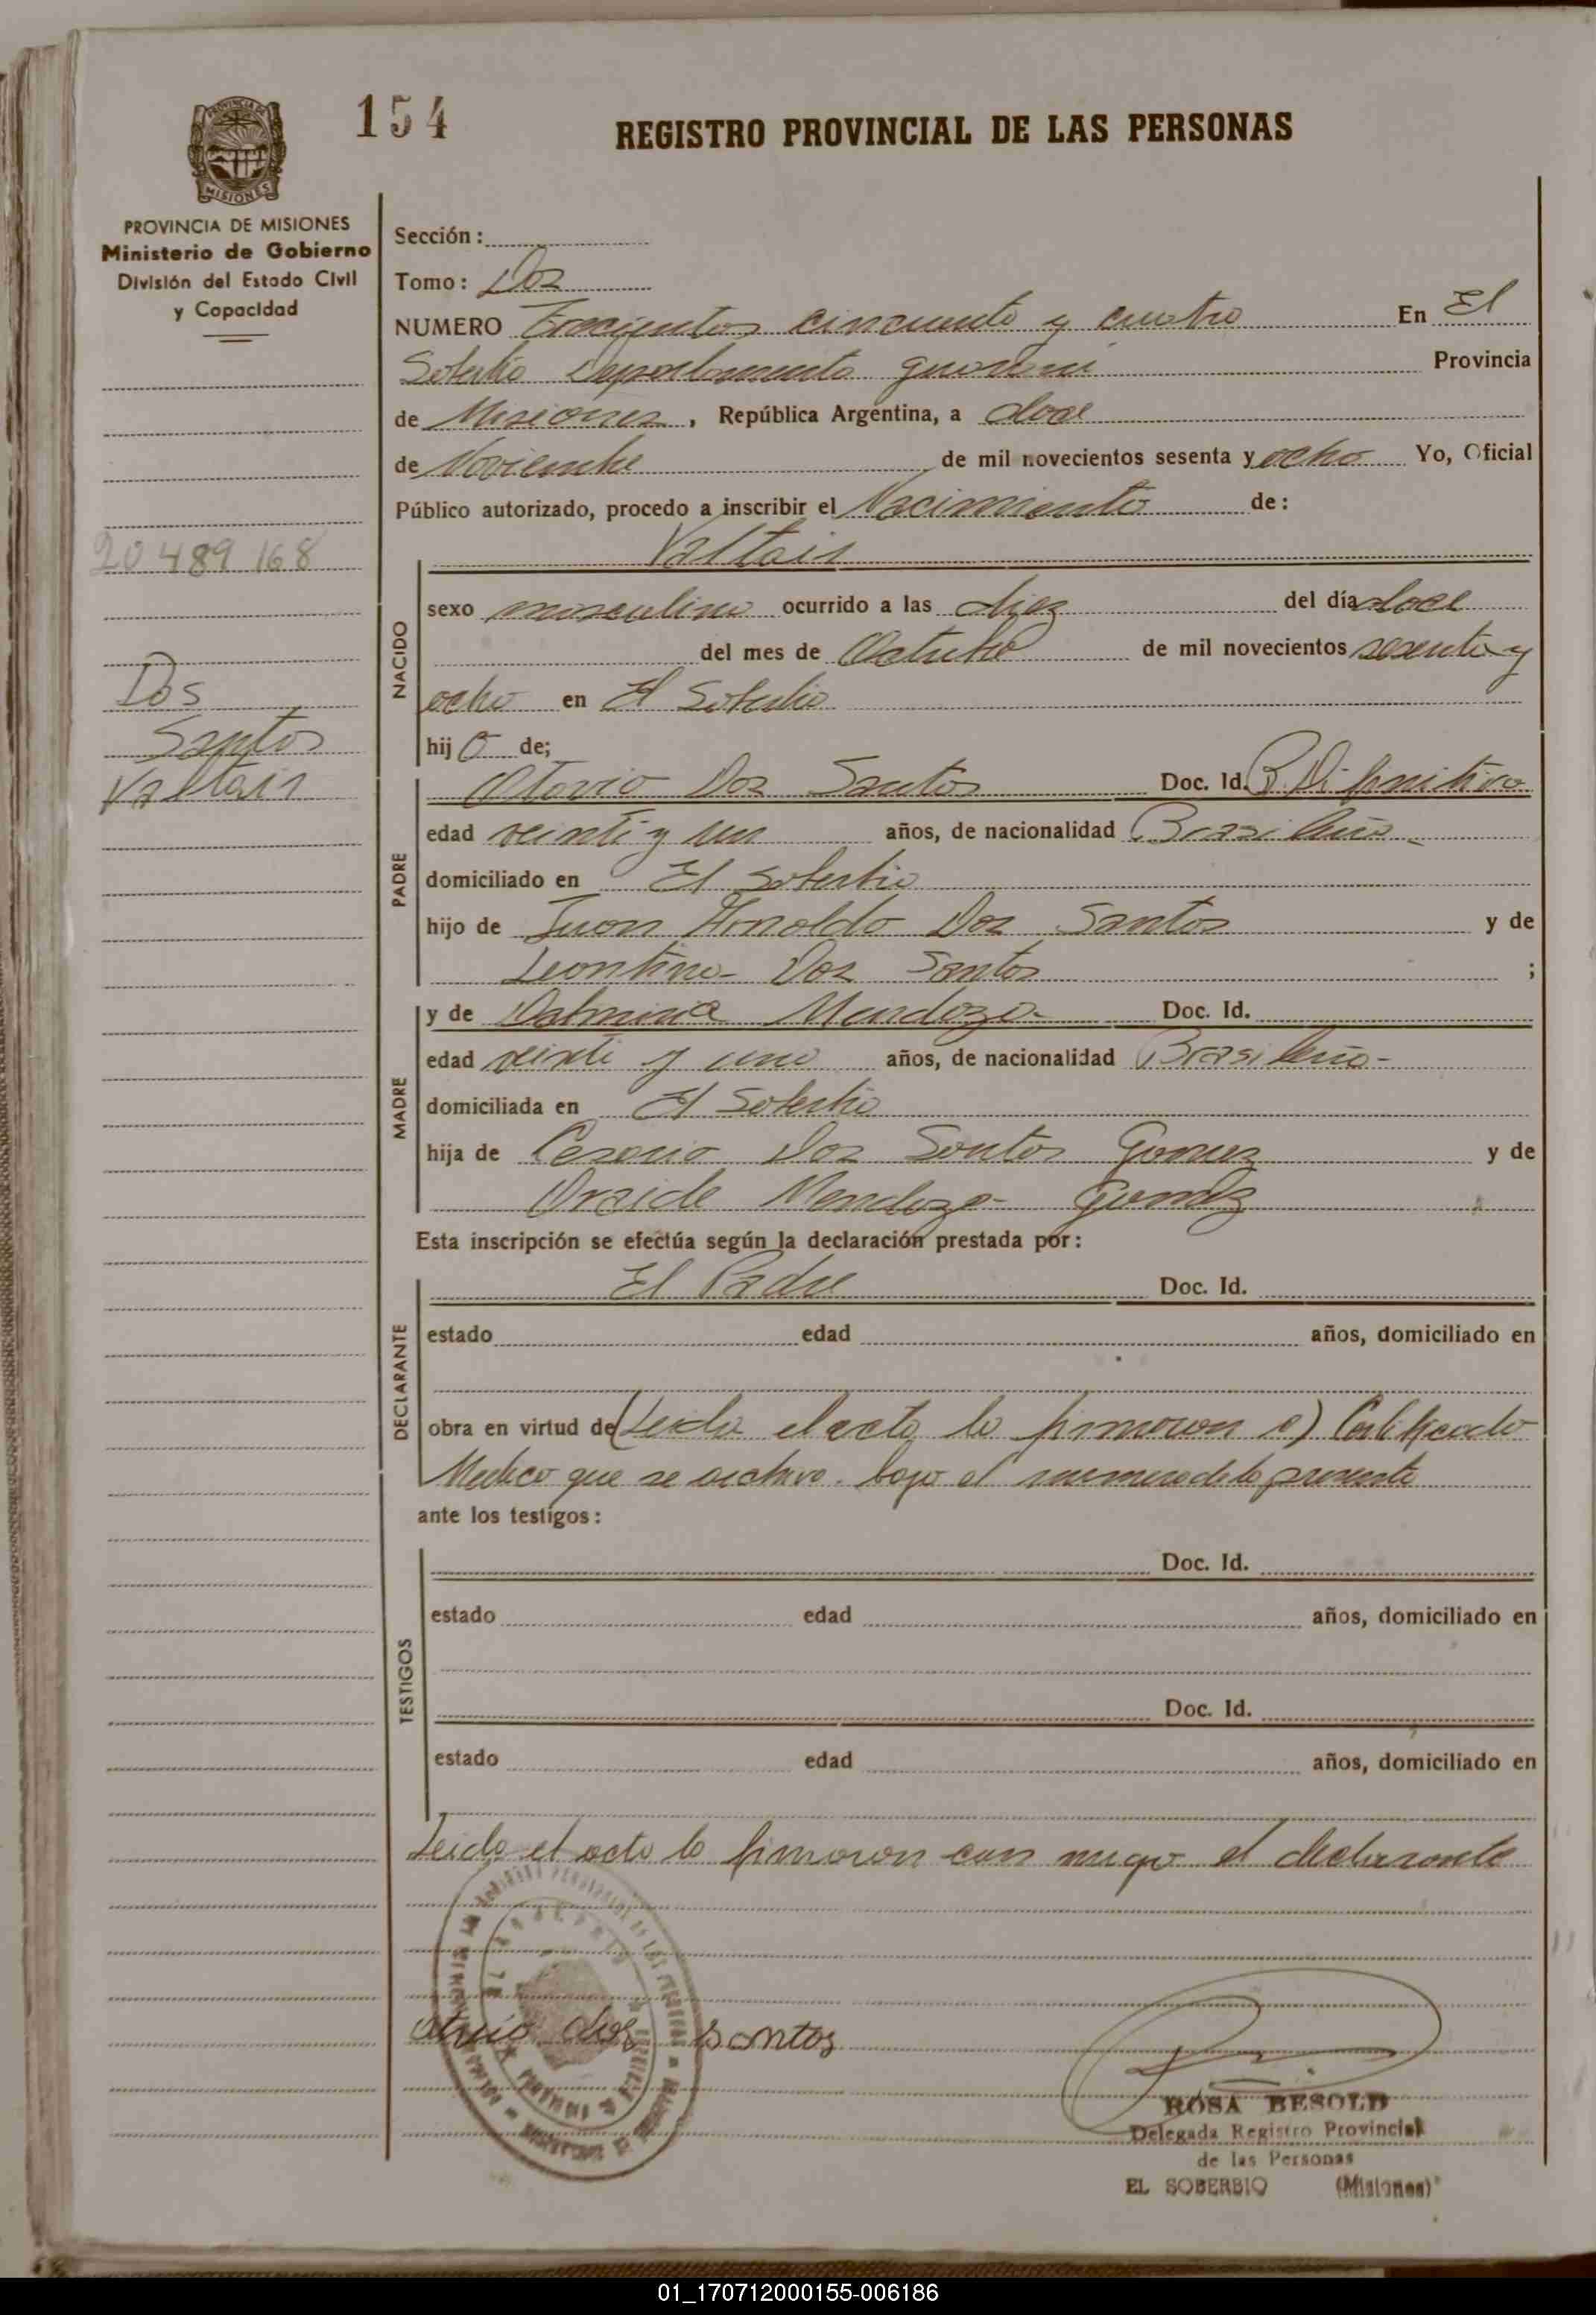 154
REGISTRO PROVINCIAL DE LAS PERSONAS
PROVINCIA DE
MISIONES
PROVINCIA DE MISIONES
Ministerio de Gobierno
División del Estado Civil
y Capacidad
20 489 168
Dos
Santos
Valtair
Sección :
Tomo : Dos
NUMERO Trescientos cincuenta y cuatro En El
Soberbio Departamento Guarani Provincia
de Misiones, República Argentina, a doce
de Noviembre de mil novecientos sesenta y ocho Yo, Oficial
Público autorizado, procedo a inscribir el Nacimiento de :
Valtair
NACIDO
sexo masculino ocurrido a las diez del día doce
del mes de Octubre de mil novecientos sesenta y
ocho en El Soberbio
hijo de;
PADRE
Otavio Dos Santos Doc. Id. R. Difinitivo
edad veinti y un años, de nacionalidad Brasileño
domiciliado en El Soberbio
hijo de Juan Arnoldo Dos Santos y de
Leontina Dos Santos ;
MADRE
y de Mendoza Doc. Id.
edad veinti y uno años, de nacionalidad Brasileña
domiciliada en El Soberbio
hija de Cesario Dos Santos Gomez y de
Mendoza Gomez
Esta inscripción se efectúa según la declaración prestada por :
DECLARANTE
El Padre Doc. Id.
estado edad años, domiciliado en
obra en virtud de (Leida el acta la firmaron a) Certificado
Medico que se archiva bajo el numero de la presente
ante los testigos :
TESTIGOS
Doc. Id.
estado edad años, domiciliado en
Doc. Id.
estado edad años, domiciliado en
Leida el acta la firmaron con migo el declarante
dos santos
ROSA BESOLD
Delegada Registro Provincial
de las Personas
EL SOBERBIO (Misiones)
01_170712000155-006186